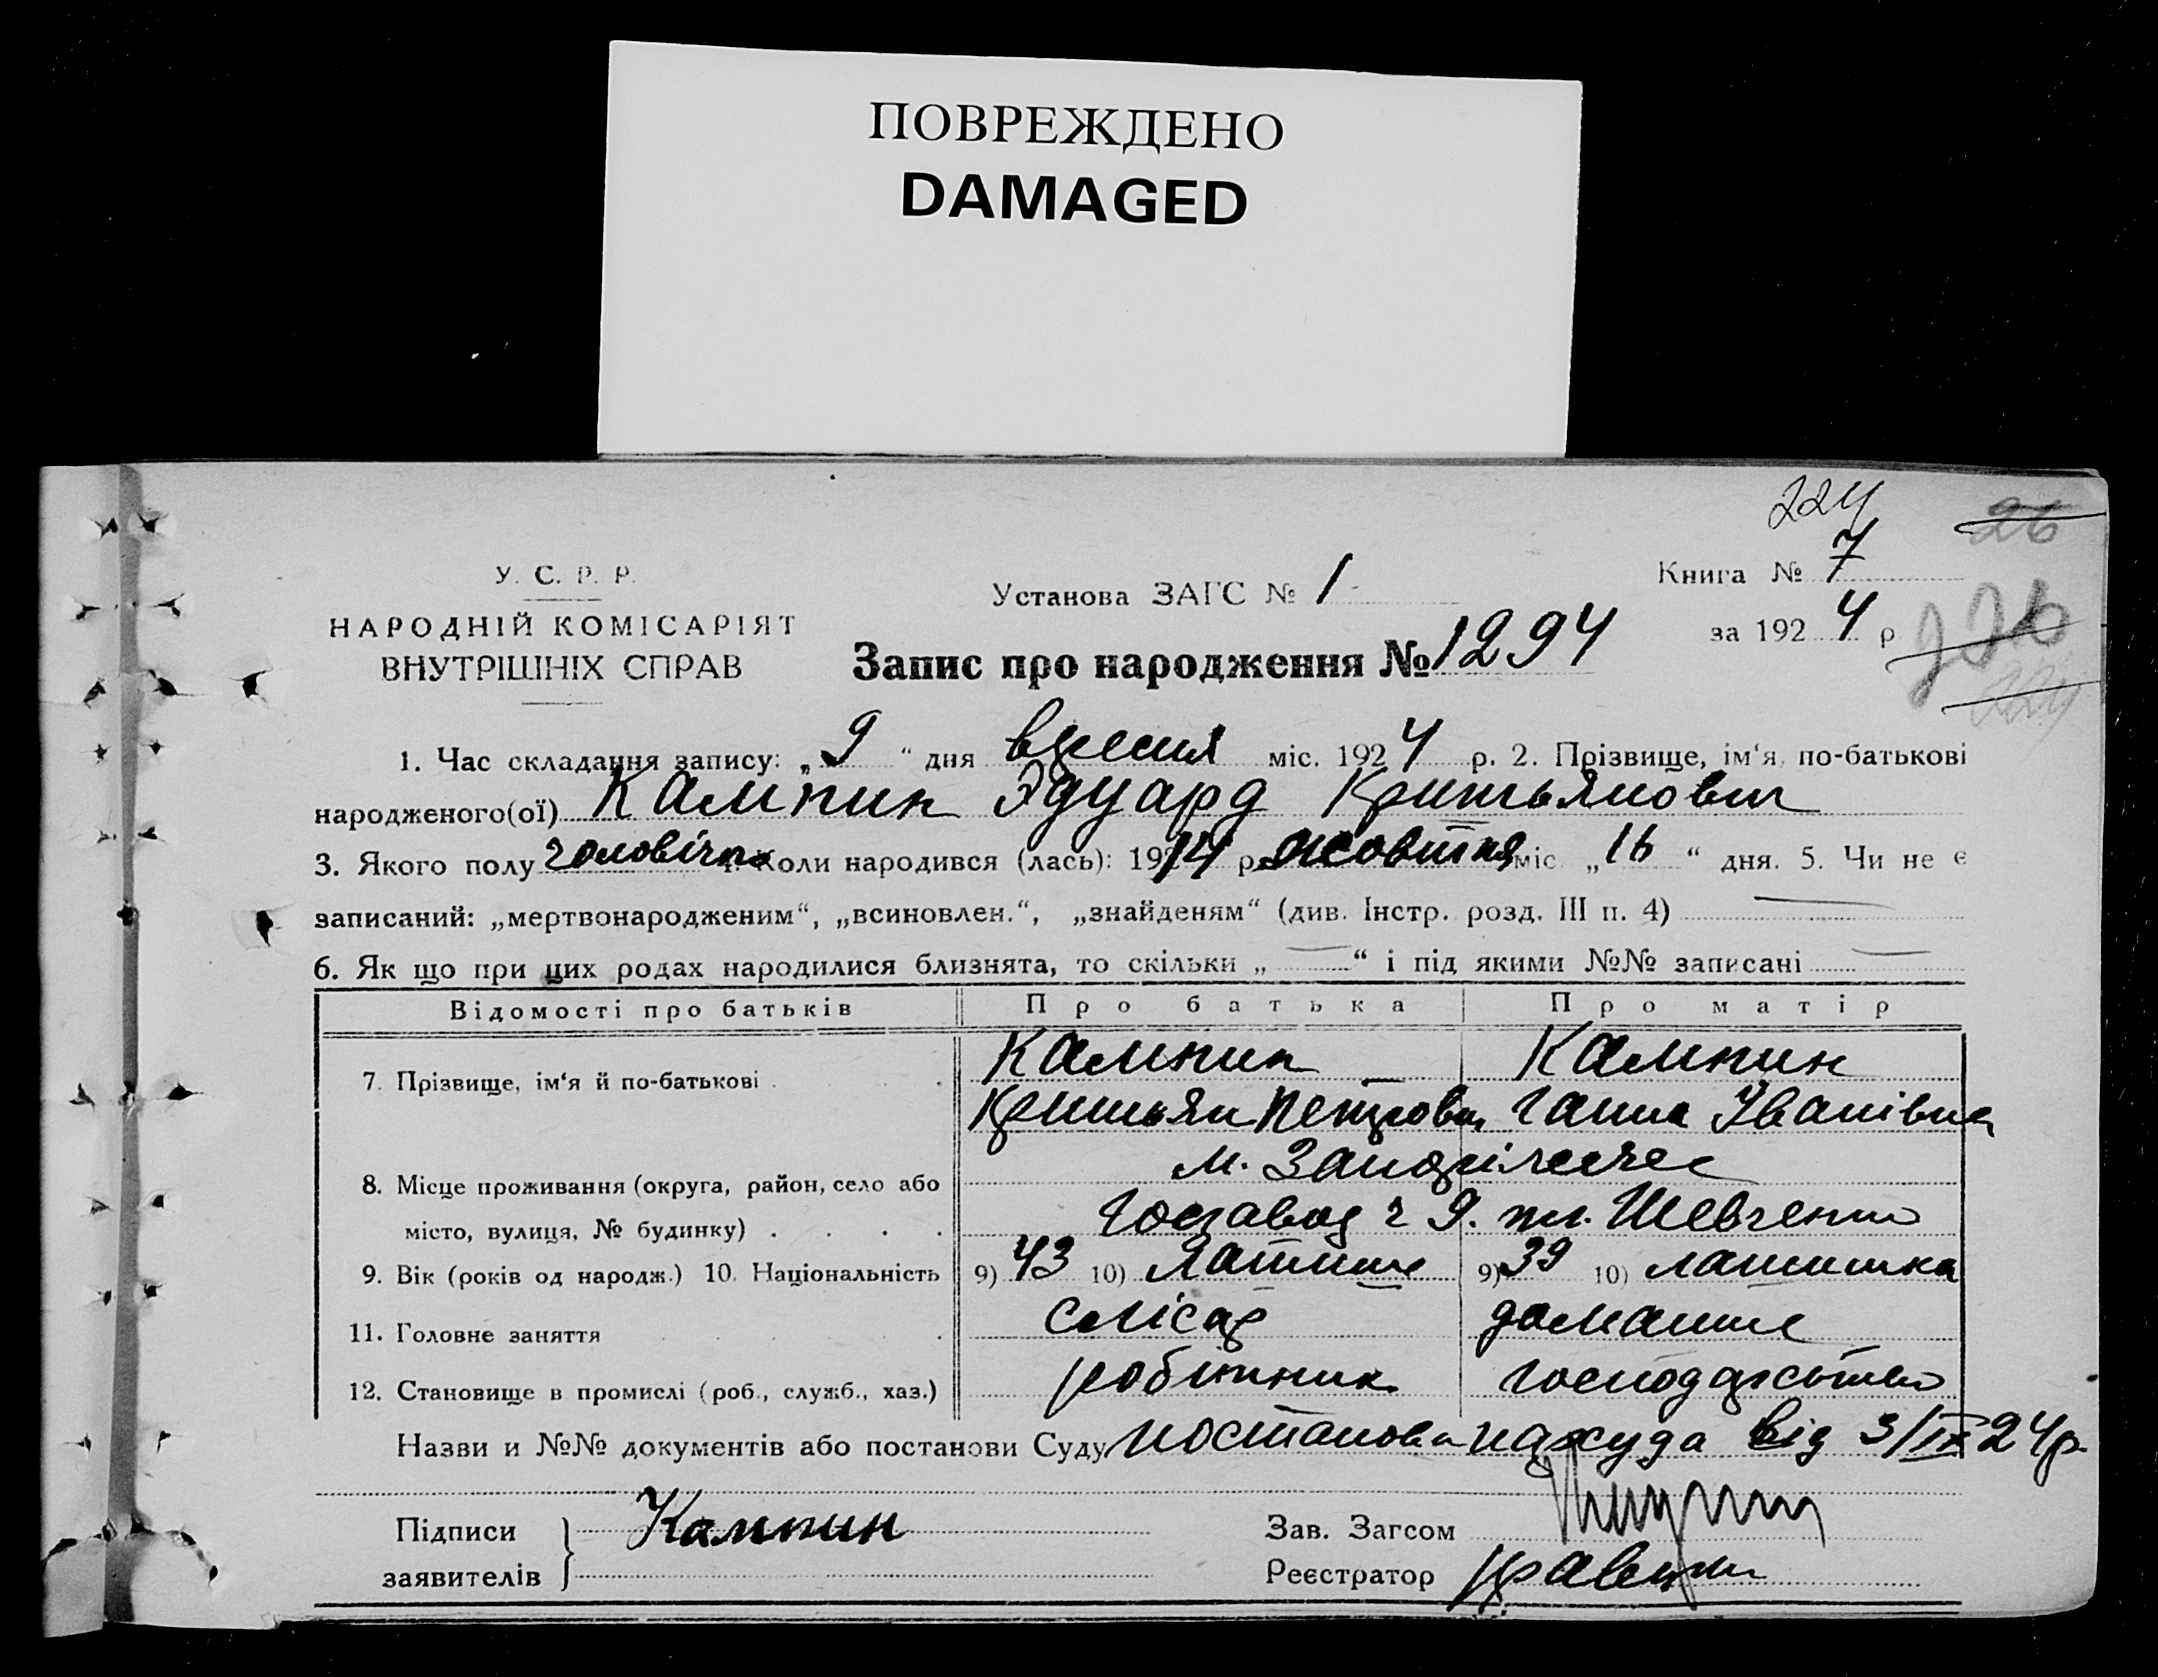 ПОВРЕЖДЕНО
DAMAGED
224
26
У. С. Р. Р.
НАРОДНІЙ КОМІСАРІЯТ
ВНУТРІШНІХ СПРАВ
Установа ЗАГС № 1
Книга № 7
за 1924 р
226
224
Запис про народження № 1294
1. Час складання запису: „9“ дня вересня міс. 1924 р. 2. Прізвище, ім‘я, по-батькові
народженого(ої) Кампин Эдуард Кришьянович
3. Якого полу чоловічого 4. Коли народився (лась): 1914 р. жовтня міс „16“ дня. 5. Чи не є
записаний: „мертвонародженим“, „всиновлен.“, „знайденям“ (див. Інстр. розд. III п. 4)
6. Як що при цих родах народилися близнята, то скільки „ “ і під якими №№ записані
Відомості про батьків Про батька Про матір
7. Прізвище, ім‘я й по-батькові Кампин Кампин
Кришьян Петрович Ганна Іванівна
8. Місце проживання (округа, район, село або м.
місто, вулиця, № будинку) 9. Шевченко
9. Вік (років од народж.) 10. Національність 9) 43 10) Латиш 9) 39 10) латишка
11. Головне заняття слісар домашнє
12. Становище в промислі (роб., служб., хаз.) робітник господарство
Назви и №№ документів або постанови Суду постанова нарсуда від 3/IX 24 р.
Підписи
заявителів
Кампин
Зав. Загсом
Реєстратор